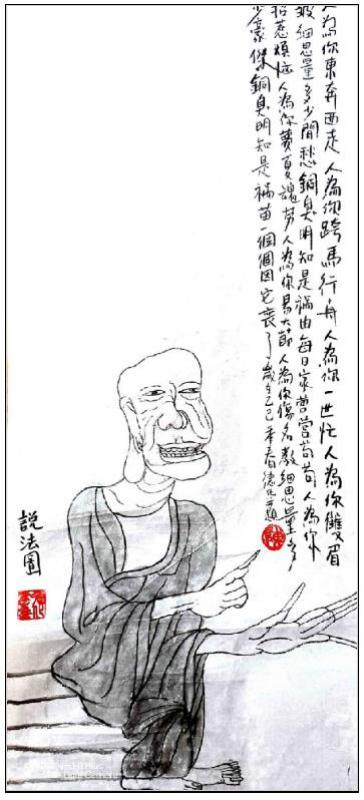 人為你東奔西走人為你跨馬行舟人為你一世忙人為你雙眉
皺細思量多少閒愁銅臭明知是禍由每日家營營苟苟人為你
招惹煩惱人為你夢魂勞人為你易大節人為你傷名教細思量多
少豪傑銅臭明知是禍苗一個個因它喪了歲在乙巳季春德題
說法圖